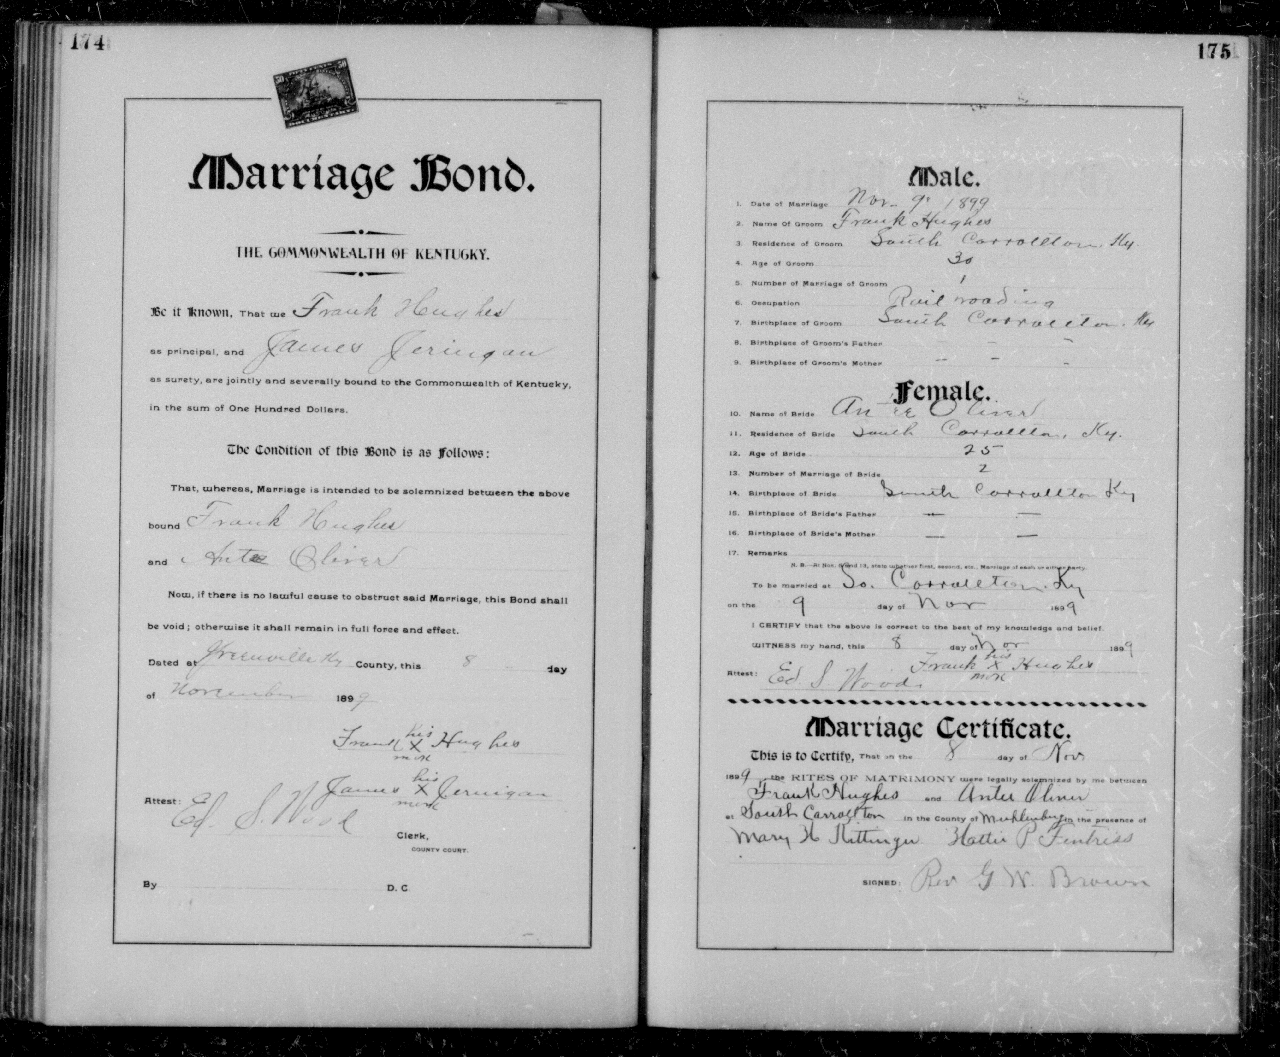 174
50 50
DOCUMENTARY
Marriage Bond.
THE COMMONWEALTH OF KENTUCKY.
Be it Known, That we Frank Hughes
as principal, and James Jernigan
as surety, are jointly and severally bound to the Commonwealth of Kentucky,
in the sum of One Hundred Dollars.
The Condition of this Bond is as Follows:
That, whereas, Marriage is intended to be solemnized between the above
bound Frank Hughes
and Antee Oliver
Now, if there is no lawful cause to obstruct said Marriage, this Bond shall
be void; otherwise it shall remain in full force and effect.
Dated at Greenville Ky County, this 8 day
of November 1899
his
Frank X Hughes
mark
his
James X Jernigan
mark
Attest: Ed. S. Wood
Clerk,
COUNTY COURT.
By D. C
175
Male.
1. Date of Marriage Nov. 9" 1899
2. Name Of Groom Frank Hughes
3. Residence of Groom South Carrollton, Ky.
4. Age of Groom 30
5. Number of Marriage of Groom 1
6. Occupation Rail roading
7. Birthplace of Groom South Carrollton, Ky
8. Birthplace of Groom's Father — — —
9. Birthplace of Groom's Mother — — —
Female.
10. Name of Bride Antee Oliver
11. Residence of Bride South Carrollton, Ky.
12. Age of Bride 25
13. Number of Marriage of Bride 2
14. Birthplace of Bride South Carrollton Ky
15. Birthplace of Bride's Father — —
16. Birthplace of Bride's Mother — —
17. Remarks
N. B.—At Nos. 5 and 13, state whether first, second, etc., Marriage of each or either party.
To be married at So. Carrollton. Ky
on the 9 day of Nov 1899
I CERTIFY that the above is correct to the best of my knowledge and belief.
WITNESS my hand, this 8 day of Nov 1899
his
Frank X Hughes
mark
Attest: Ed S Wood.
Marriage Certificate.
This is to Certify, That on the 8 day of Nov
1899, the RITES OF MATRIMONY were legally solemnized by me between
Frank Hughes and Antee Oliver
at South Carrollton in the County of Muhlenberg in the presence of
Mary H Kittinger Hattie P Fentriss
SIGNED: Rev G W. Brown